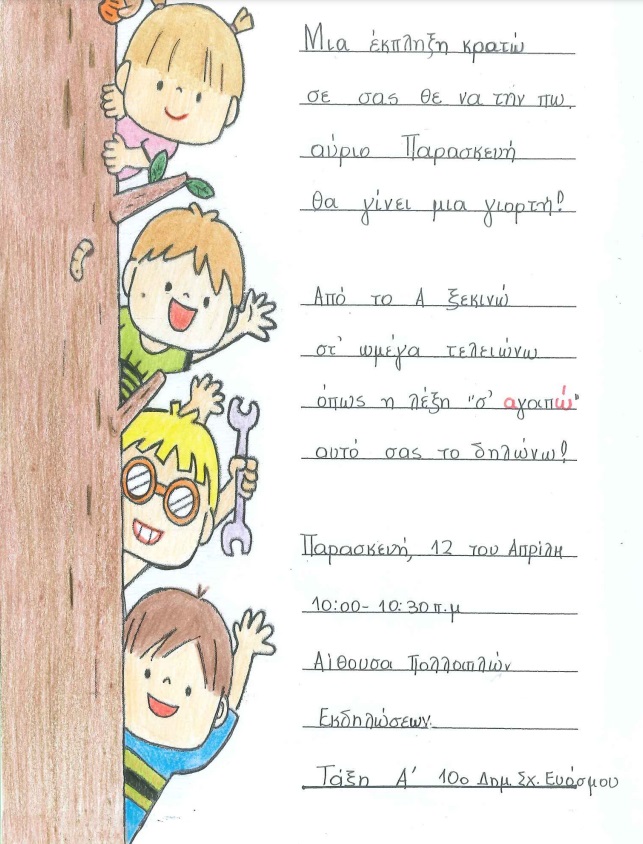 Μια έκπληξη κρατώ
σε σας θε να την πω
αύριο Παρασκευή
θα γίνει μια γιορτή!
Από το Α ξεκινώ
στ' ωμέγα τελειώνω
όπως η λέξη "σ' αγαπώ"
αυτό σας το δηλώνω!
Παρασκευή, 12 του Απρίλη
10:00-10:30 π.μ
Αίθουσα Πολλαπλών
Εκδηλώσεων.
Τάξη Α' 10ο Δημ. Σχ. Ευόσμου